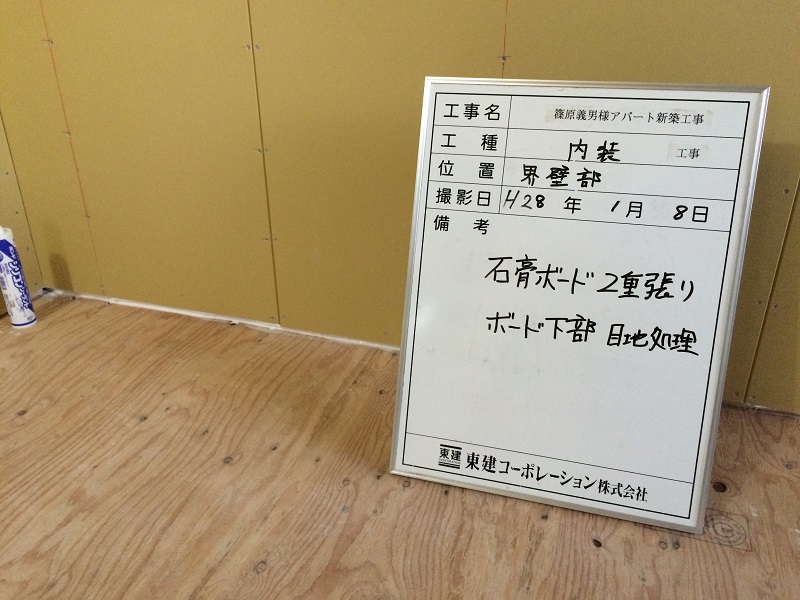 工事名 篠原義男様アパート新築工事
工種 内装 工事
位置 界壁部
撮影日 H28年 1月 8日
備考
石膏ボード 2重張り
ボード下部 目地処理
東建 東建コーポレーション株式会社